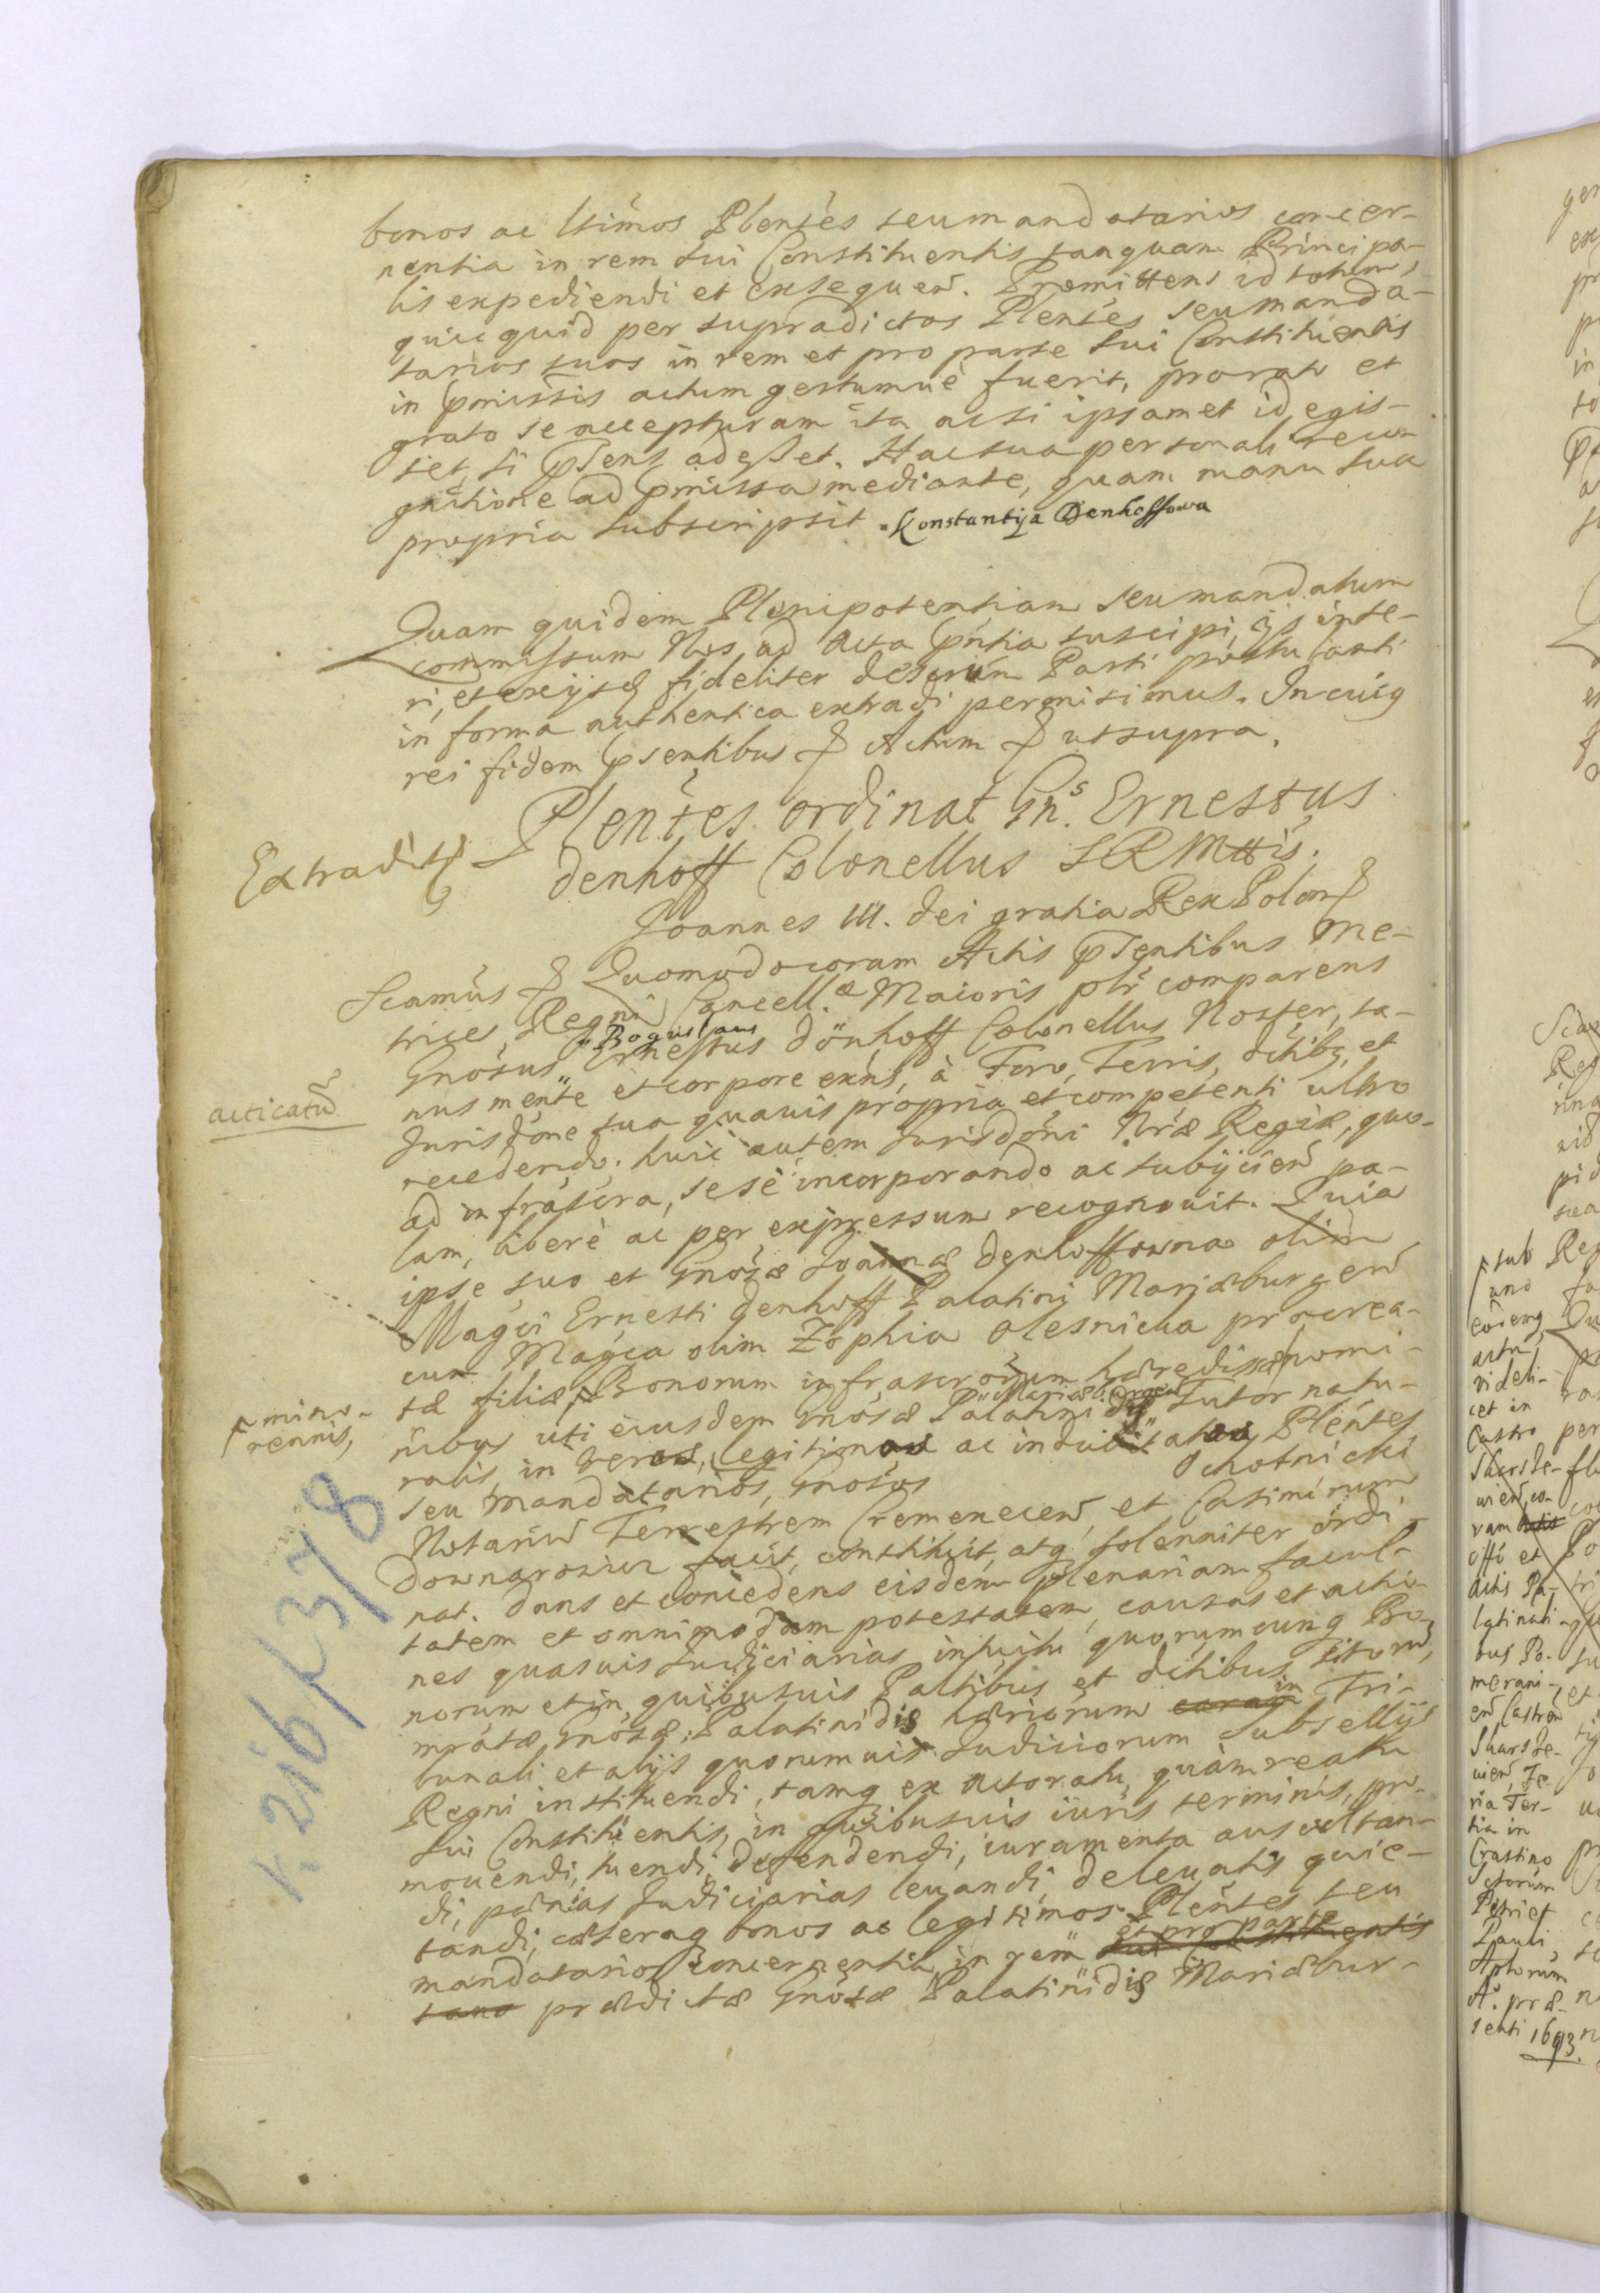 bonos ac ltimos Plentes seu mandatarios concer-
nentia in rem sui Constituentis tanquam Principa-
lis expediendi et exsequen. Promittens id totum,
quicquid per supradictos Plentes seu manda-
tarios suos in rem et pro parte sui Constituentis
in pmissis actum gestumue fuerit, pro rato et
grato se accepturam ita ac si ipsamet id egis-
set, si psens adesset. Hac sua personali recog
gnitione ad pmissa mediante, quam manu sua
propria subscripsit. Konstantija Denhoffowa
Quam quidem Plenipotentiam seu mandatum
commissum Nos ad Acta pntia suscipi, ijs inse-
ri, et ex ijsdem fideliter descrm Parti postulanti
in forma authentica extradi permisimus. In cuius
rei fidem psentibus Actum ut supra.
Extradit
Plentes ordinat Gns. Ernestus
denhoff Colonellus SRMttis.
Joannes III. dei gratia Rex Polon
Scamus Quomodo coram Actis psentibus Me-
trices Regni Cancell.æ Maioris plr comparens
Gnosus Boguslaus Ernestus Dönhoff Colonellus Noster, sa-
acticatum
nus mente et corpore exns, à Foro, Terris, dctibus, et
Jurisdone sua quauis propria et competenti ultro
recedendo, huic autem Jurisdoni Nræ Regiæ, quo-
ad infrascra, sese incorporando ac subijcien pa-
lam, liberè ac per expressum recognouit. Quia
ipse suo et Gnosæ Joannæ denhoffowna olim
Magci Ernesti denhoff Palatini Mariæburgen
cum Magca olim Zophia Olesnicka procrea-
tæ filiæ Bonorum infrascrorum hæredissæ nomi-
minorennis,
nibus uti eiusdem Gnosæ Palatinidis Mariæburgen Tutor natu-
ralis, in veros, legitimos ac indubitatos Plentes
seu Mandatarios, Gnosos Ochotnicki
Notarium Terrestrem Cremenecen, et Casimirum
Downarowicz facit, constituit, atq solenniter ordi-
nat. Dans et concedens eisdem plenariam facul-
tatem et omnimodam potestatem, causas et actio-
nes quasuis Judiciarias intuitu quorumcunq Bo-
norum et in quibusuis Paltibus et dctibus sitorum,
mratæ Gnosæ Palatinidis hæriorum coram in Tri-
bunali et alijs quorumuis Judiciorum Subsellijs
Regni instituendi, tamq ex actoratu, quàm reatu
sui Constituentis, in quibusuis iuris terminis, pro-
mouendi, tuendi, defendendi, iuramenta auscultan-
di, pœnas Judiciarias leuandi, deleuatis quie-
tandi, cæteraq bonos ac legitimos Plentes seu
mandatarios concernentia, in rem et pro parte sui Constituentis
suas prædictæ Gnosæ Palatinidis Mariæbur-
k. 216 / 378
sub
uno
eodemq
actu
videli-
cet in
Castro
co-
ram
offi et
Actis Pa-
latinati-
bus Po-
merani-
en, Castren
Skarsze-
uien, Fe-
ria Ter-
tia in
Crastino
Sctorum
Petri et
Pauli
Aptorum
A. præ-
senti 1693.